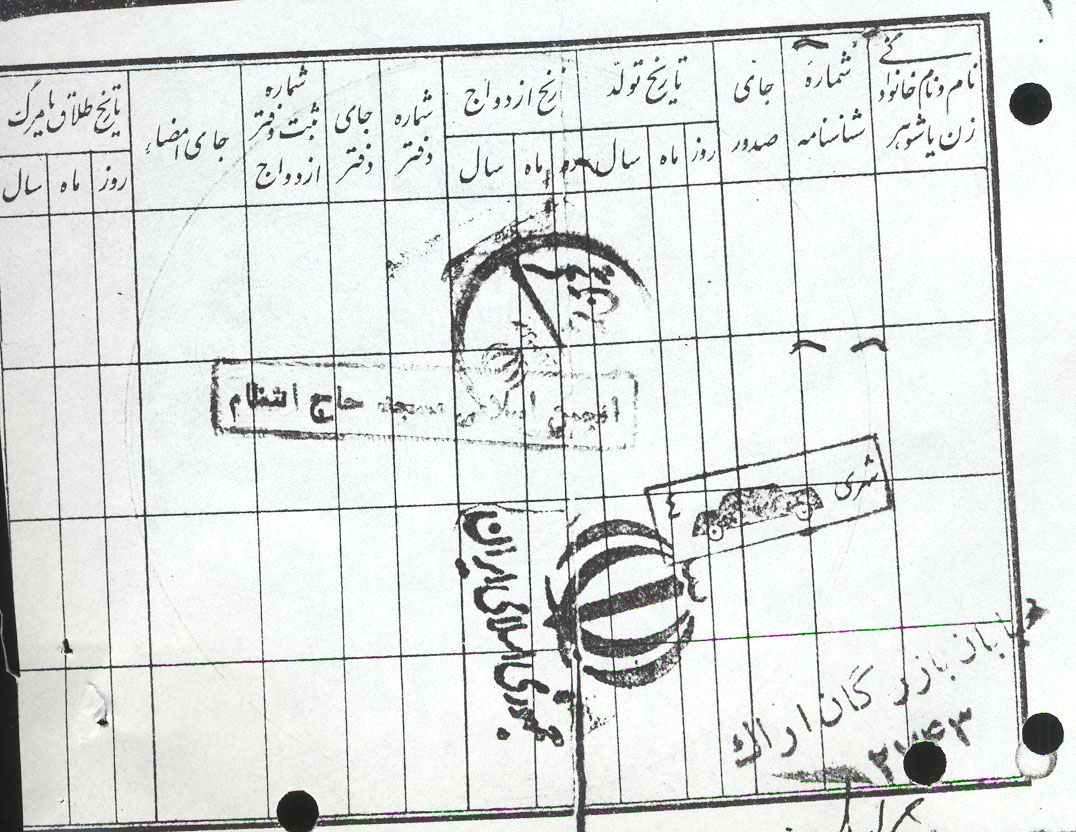 نام و نام خانوادگی
زن یا شوهر
شماره
شناسنامه
جای
صدور
تاریخ تولد
روز ماه سال
تاریخ ازدواج
ماه سال
شماره
دفتر
جای
دفتر
شماره
ثبت دفتر
ازدواج
جای امضاء
تاریخ طلاق یا مرگ
روز ماه سال
انجمن اسلامی مسجد حاج انتظام
شهری
٤
٤
جمهوری اسلامی ایران
خیابان بازرگان اراک
۲۷۴۳